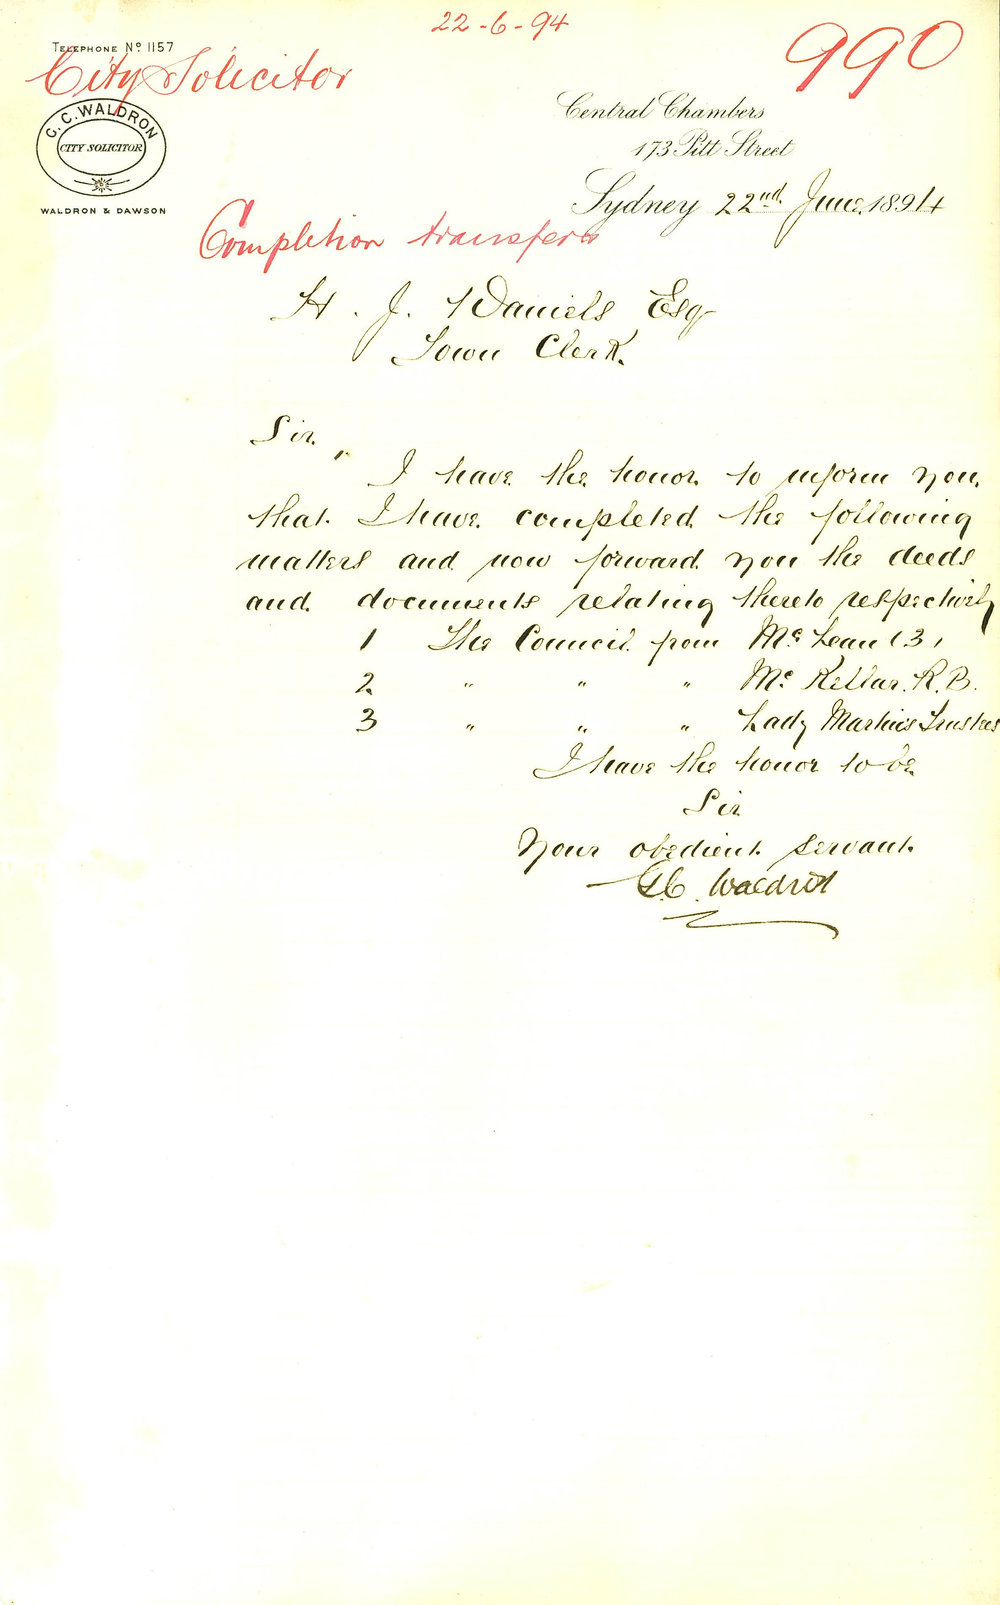 22-6-94
990
TELEPHONE Nº 1157
City Solicitor
G. C. WALDRON
CITY SOLICITOR
WALDRON & DAWSON
Central Chambers
173 Pitt Street
Sydney 22nd June 1894
Completion transfers
H. J. Daniels Esq
Town Clerk.
Sir,
I have the honor to inform you
that I have completed the following
matters and now forward you the deeds
and documents relating thereto respectively
1 The Council from Mc Lean (3)
2 " " " Mc Kellar. R. B.
3 " " " Lady Martin's Trustees
I have the honor to be
Sir
Your obedient servant
G. C. Waldron